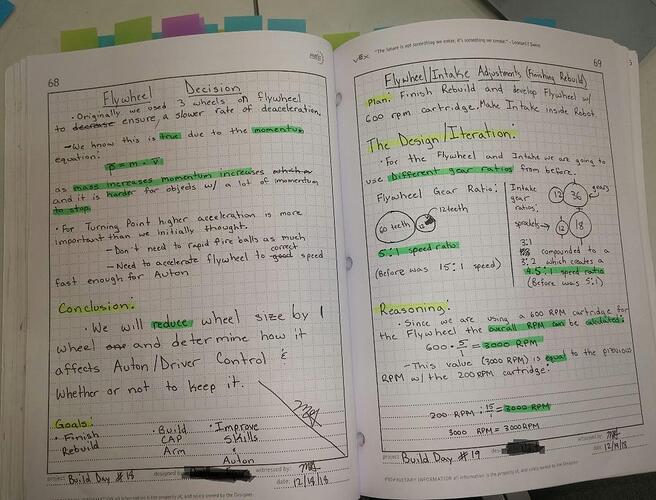 68
Flywheel Decision
· Originally we used 3 wheels on flywheel
to decrease ensure a slower rate of deacceleration.
- We know this is true due to the momentum
equation:
p = m · v
as mass increases momentum increases
and it is harder for objects w/ a lot of momentum
to stop.
· For Turning Point higher acceleration is more
important than we initially thought.
- Don't need to rapid fire balls as much
- Need to accelerate flywheel to good correct speed
fast enough for Auton
Conclusion:
· We will reduce wheel size by 1
wheel and determine how it
affects Auton/Driver Control &
whether or not to keep it.
Goals:
· Finish Rebuild
· Build CAP Arm
· Improve Skills & Auton
project Build Day #18 designed by witnessed by:
date: 12/18/18
VEX "The future is not something we enter, it's something we create." - Leonard I Sweet
69
Flywheel/Intake Adjustments (Finishing Rebuild)
Plan: Finish Rebuild and develop Flywheel w/
600 rpm cartridge. Make Intake inside Robot
The Design/Iteration:
· For the Flywheel and Intake we are going to
use different gear ratios from before.
Flywheel Gear Ratio:
60 teeth
12 teeth
5:1 speed ratio
(Before was 15:1 speed)
Intake
gear
ratios:
12 36 gears
sprockets 12 18
3:1
compounded to a
3:2 which creates a
4.5:1 speed ratio
(Before was 5:1)
Reasoning:
· Since we are using a 600 RPM cartridge for
the Flywheel the overall RPM can be calculated:
600 · 5/1 = 3000 RPM
- This value (3000 RPM) is equal to the previous
RPM w/ the 200 RPM cartridge:
200 RPM · 15/1 = 3000 RPM
3000 RPM = 3000 RPM
project Build Day #19 witnessed by:
date: 12/19/18
PROPRIETARY INFORMATION